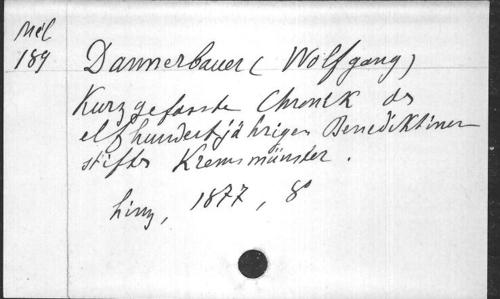 Mél
189
Dannerbauer (Wolfgang)
Kurzgefasste Chronik des
elfhundertjährigen Benediktiner
stiftes Kremsmünster.
Linz, 1877, 8°